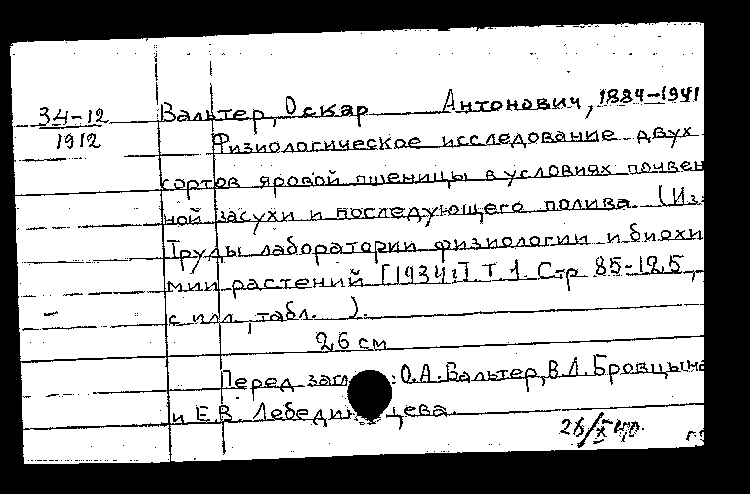 34-12
1912
Вальтер, Оскар Антонович, 1884-1941
Физиологическое исследование двух
сортов яровой пшеницы в условиях почвен
ной засухи и последующего полива. (Из:
Труды лаборатории физиологии и биохи
мии растений [1934г]. Т 1. Стр 85-125,
с илл, табл. ).
26 см
Перед загл : О.А. Вальтер, В.Л. Бровцына
и Е.В. Лебединцева.